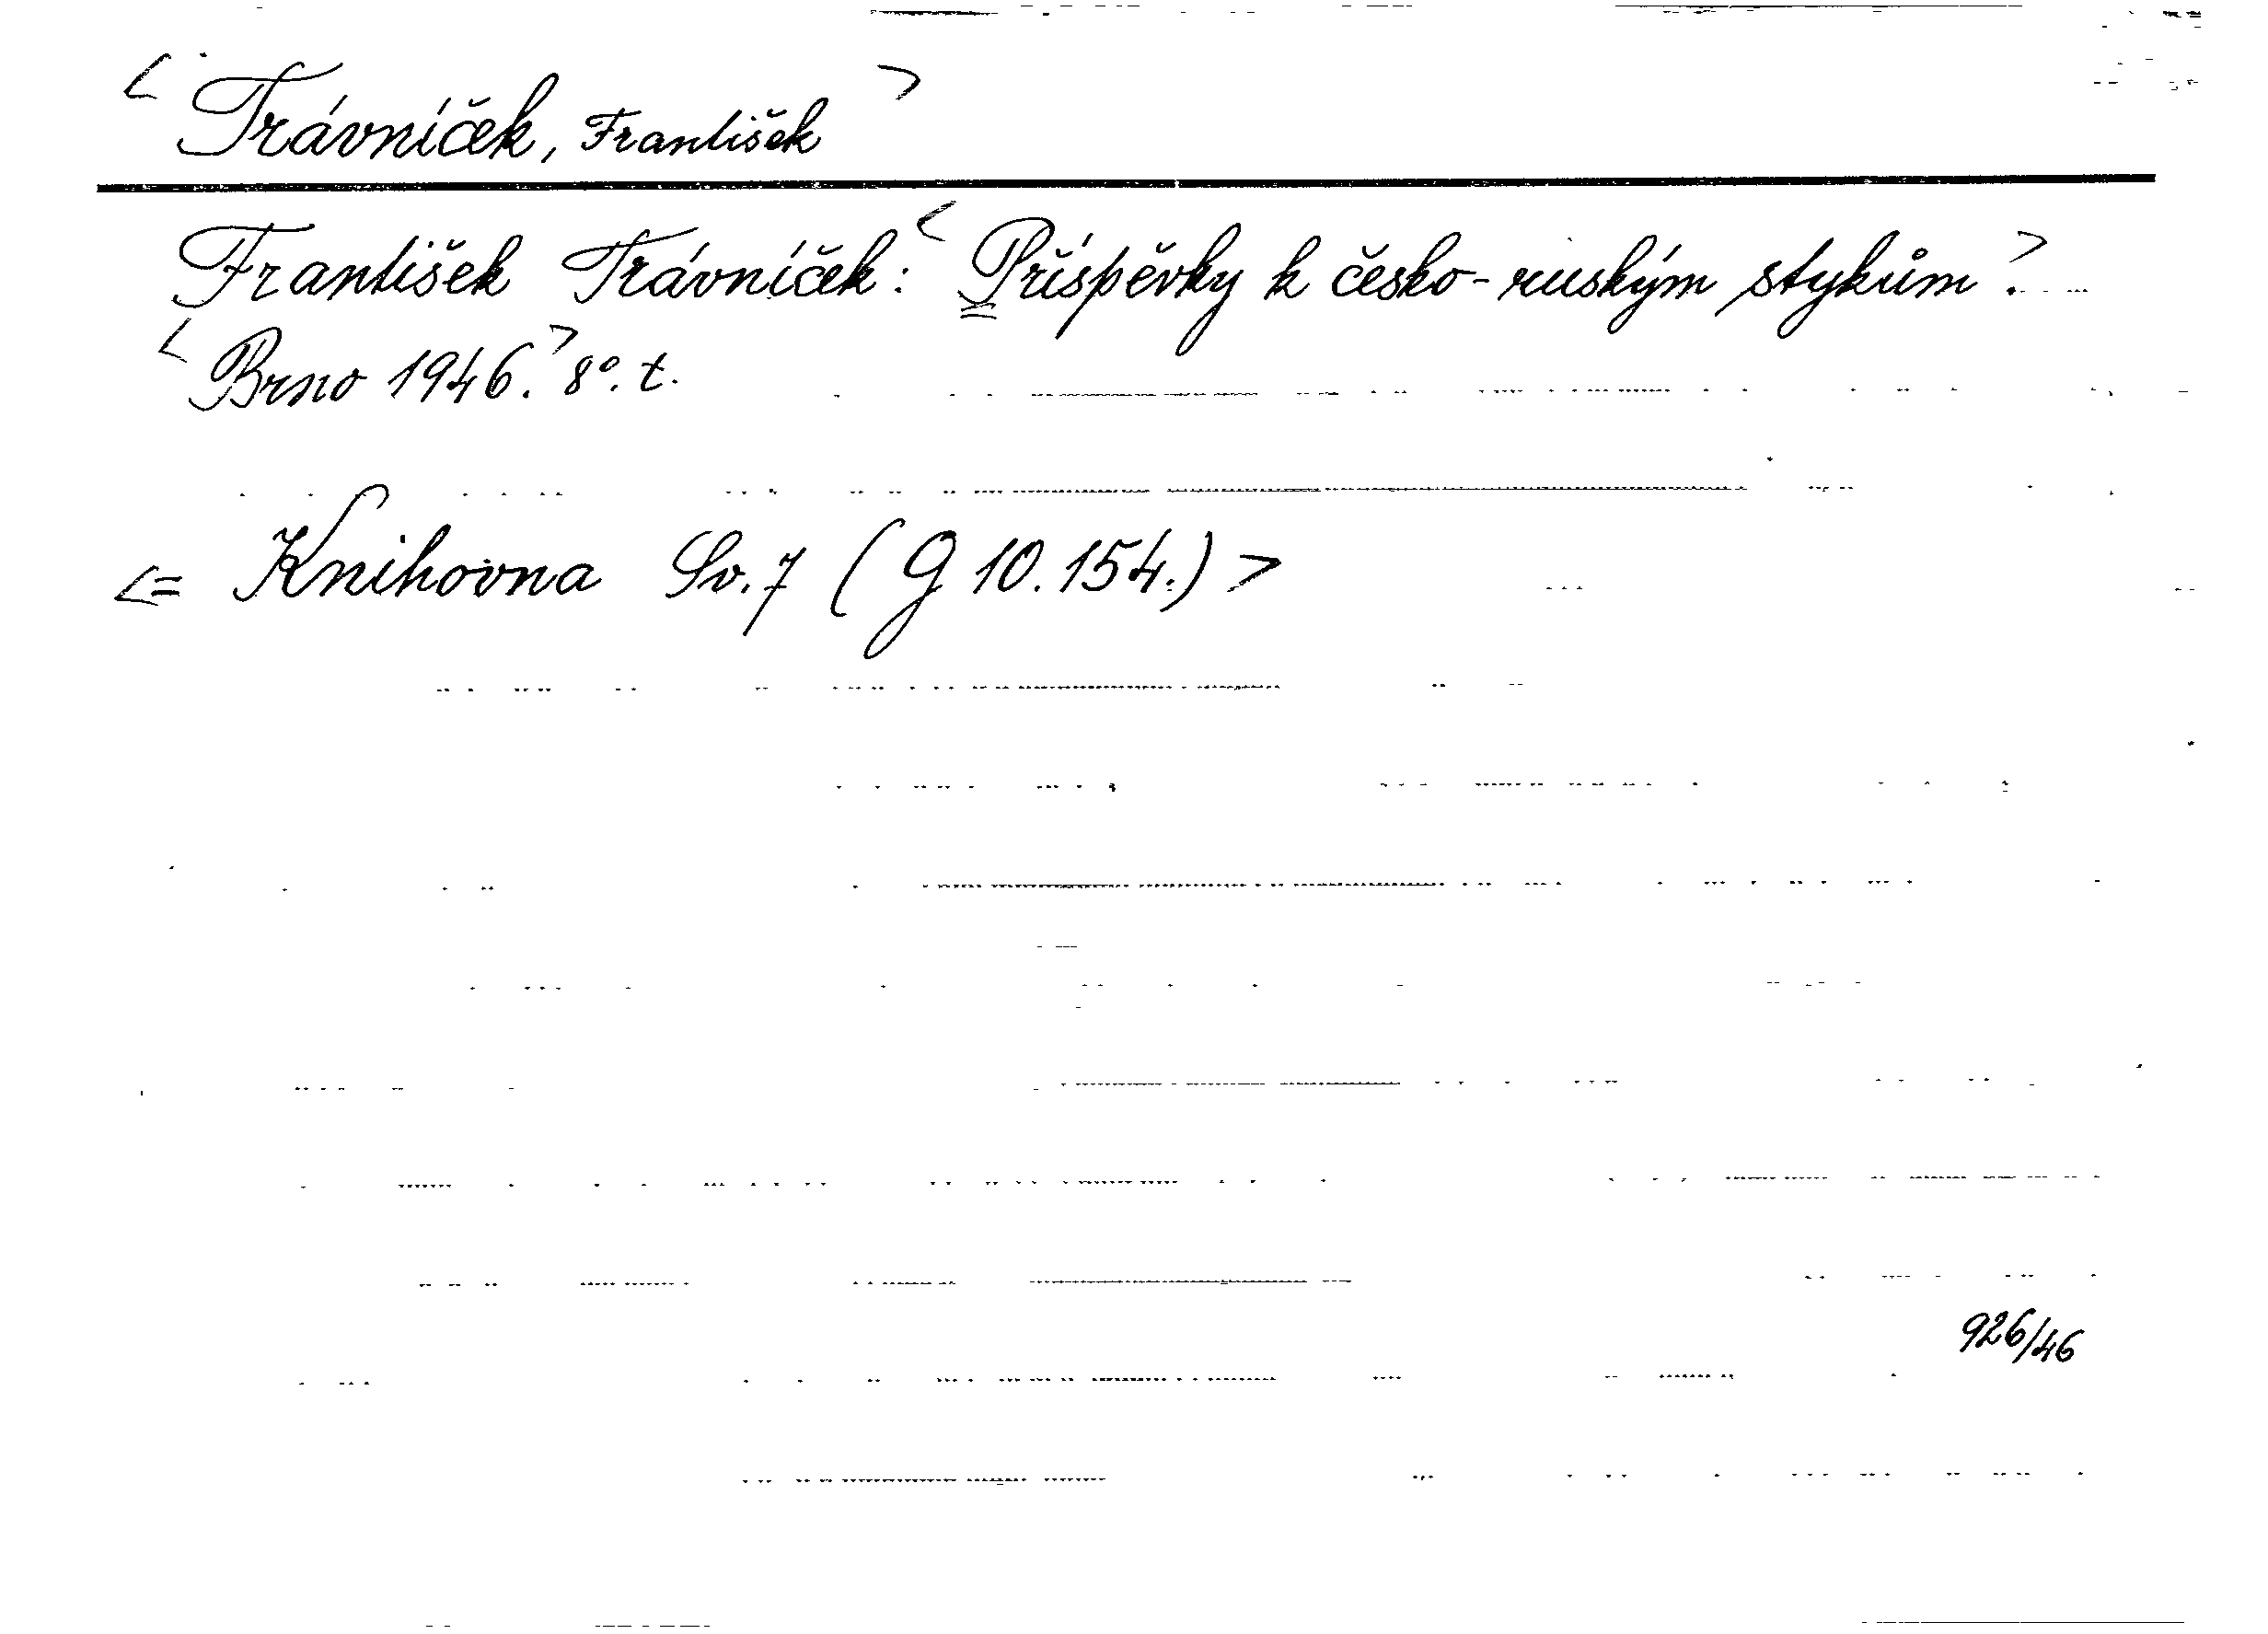 < Trávníček, František >
František Trávníček: < Příspěvky k česko-ruským stykům. >
< Brno 1946. > 8°. t.
<= Knihovna Sv. 7 (G 10.154.) >
926/46